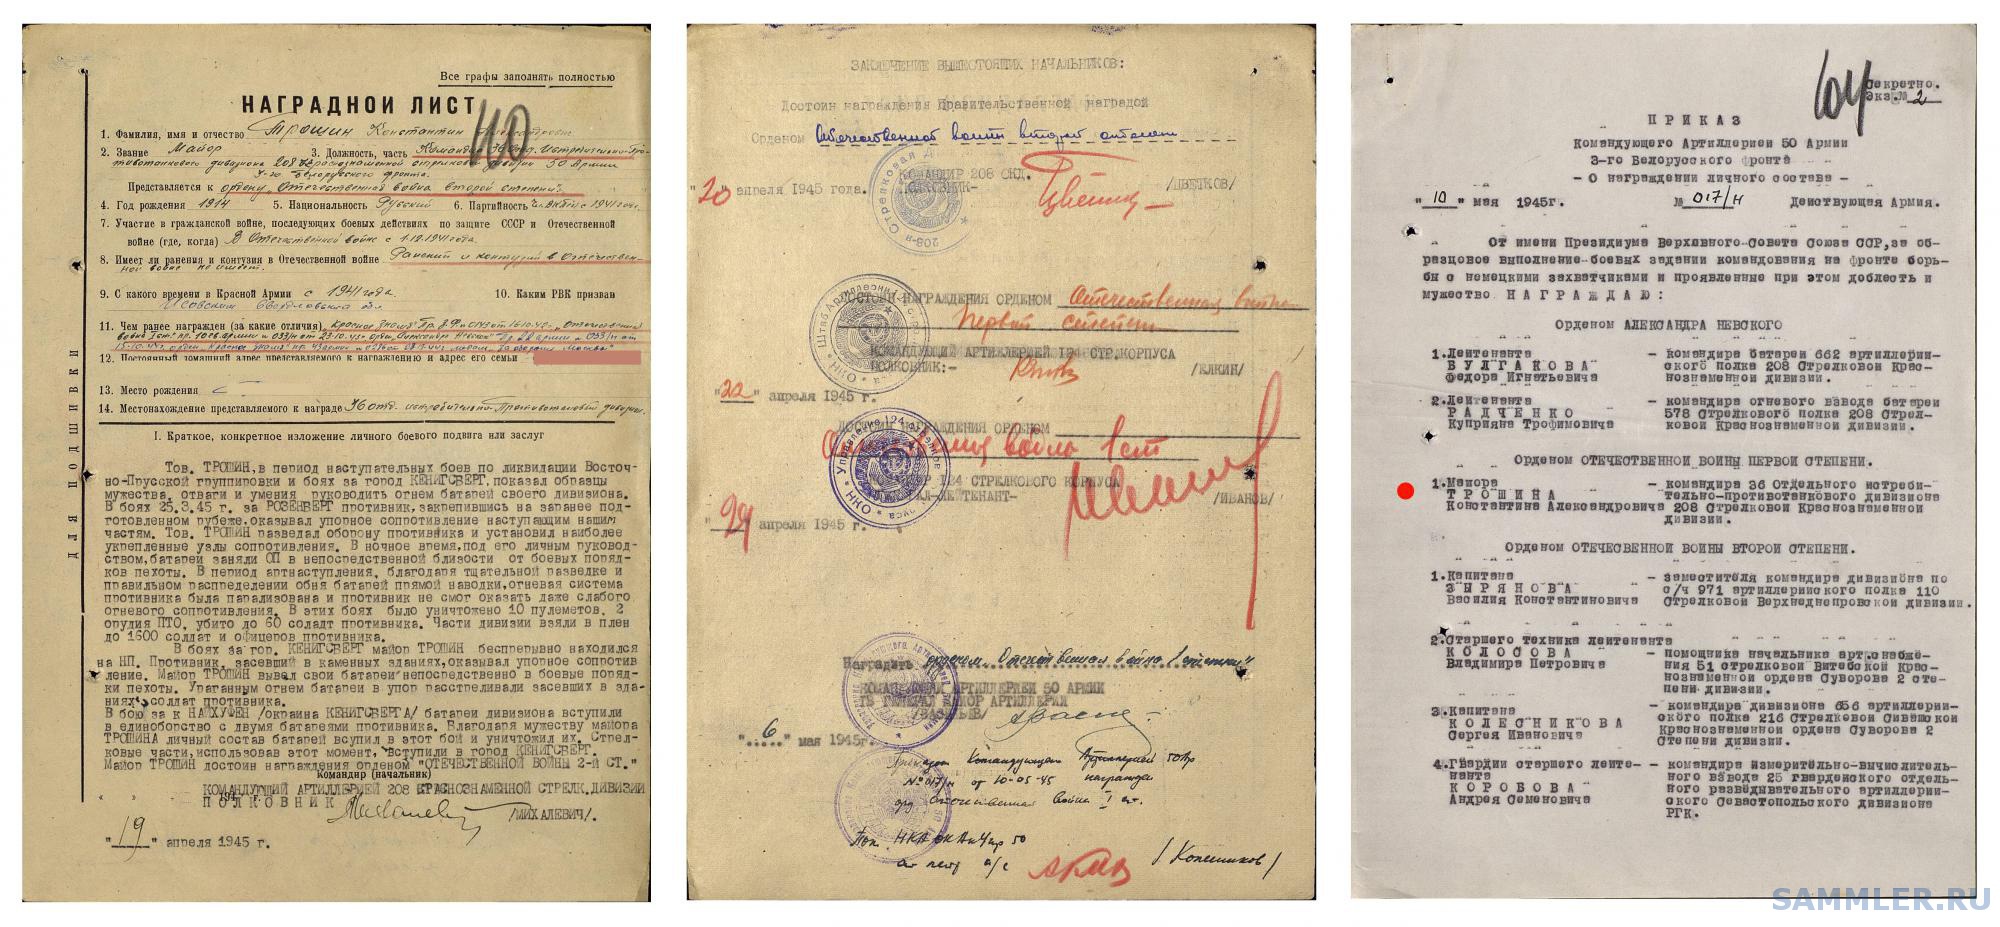 Все графы заполнять полностью
НАГРАДНОЙ ЛИСТ
40
1. Фамилия, имя и отчество Трошин Константин Александрович
2. Звание Майор 3. Должность, часть Командир 36 Отд. Истребительно-Про-
тивотанкового дивизиона 208 Краснознаменной стрелковой дивизии 50 Армии
3-го Белорусского фронта.
Представляется к ордену „Отечественная война второй степени"
4. Год рождения 1914 5. Национальность Русский 6. Партийность чл. ВКП(б) с 1941 года.
7. Участие в гражданской войне, последующих боевых действиях по защите СССР и Отечественной
войне (где, когда) В Отечественной войне с 1.12.1941 года.
8. Имеет ли ранения и контузии в Отечественной войне Ранений и контузий в Отечествен-
ной войне не имеет.
9. С какого времени в Красной Армии с 1941 года. 10. Каким РВК призван
Исовским Свердловской обл.
11. Чем ранее награжден (за какие отличия)
12. Постоянный домашний адрес представляемого к награждению и адрес его семьи
13. Место рождения
14. Местонахождение представляемого к награде 36 отд. истребительно-Противотанковый дивизион.
ДЛЯ ПОДШИВКИ
I. Краткое, конкретное изложение личного боевого подвига или заслуг
Тов. ТРОШИН, в период наступательных боев по ликвидации Восточ-
но-Прусской группировки и боях за город КЕНИГСБЕРГ, показал образцы
мужества, отваги и умения руководить огнем батарей своего дивизиона.
В боях 25.3.45 г. за РОЗЕНБЕРГ противник, закрепившись на заранее под-
готовленном рубеже, оказывал упорное сопротивление наступающим нашим
частям. Тов. ТРОШИН разведал оборону противника и установил наиболее
укрепленные узлы сопротивления. В ночное время, под его личным руковод-
ством, батареи заняли ОП в непосредственной близости от боевых поряд-
ков пехоты. В период артнаступления, благодаря тщательной разведке и
правильном распределении обня батарей прямой наводки, огневая система
противника была парализована и противник не смог оказать даже слабого
огневого сопротивления. В этих боях было уничтожено 10 пулеметов, 2
орудия ПТО, убито до 60 солдат противника. Части дивизии взяли в плен
до 1600 солдат и офицеров противника.
В боях за гор. КЕНИГСБЕРГ майор ТРОШИН беспрерывно находился
на НП. Противник, засевший в каменных зданиях, оказывал упорное сопротив
ление. Майор ТРОШИН вывел свои батареи непосредственно в боевые поряд-
ки пехоты. Ураганным огнем батареи в упор расстреливали засевших в зда-
ниях солдат противника.
В бою за к НАЙХУФЕН /окраина КЕНИГСБЕРГА/ батареи дивизиона вступили
в единоборство с двумя батареями противника. Благодаря мужеству майора
ТРОШИНА личный состав батарей вступил в этот бой и уничтожил их. Стрел-
ковые части, использовав этот момент, вступили в город КЕНИГСБЕРГ.
Майор ТРОШИН достоин награждения орденом "ОТЕЧЕСТВЕННОЙ ВОЙНЫ 2-й СТ."
Командир (начальник)
КОМАНДУЮЩИЙ АРТИЛЛЕРИЕЙ 208 КРАСНОЗНАМЕННОЙ СТРЕЛК. ДИВИЗИИ
ПОЛКОВНИК /МИХАЛЕВИЧ/.
"19" апреля 1945 г.
ЗАКЛЮЧЕНИЕ ВЫШЕСТОЯЩИХ НАЧАЛЬНИКОВ:
Достоин награждения Правительственной наградой
Орденом Отечественной войны второй степени
КОМАНДИР 208 СКД.
ПОЛКОВНИК- /ЦВЕТКОВ/
"20" апреля 1945 года.
ДОСТОИН НАГРАЖДЕНИЯ ОРДЕНОМ Отечественная война
Первой степени
КОМАНДУЮЩИЙ АРТИЛЛЕРИЕЙ 124 СТР.КОРПУСА
ПОЛКОВНИК:- /ЕЛКИН/
"22" апреля 1945 г.
ДОСТОИН НАГРАЖДЕНИЯ ОРДЕНОМ
война 1 ст
КОМАНДИР 124 СТРЕЛКОВОГО КОРПУСА
-ЛЕЙТЕНАНТ- /ИВАНОВ/
апреля 1945 г.
Наградить орденом Отечественная война 1 степени
КОМАНДУЮЩИЙ АРТИЛЛЕРИЕЙ 50 АРМИИ
ГЕНЕРАЛ МАЙОР АРТИЛЛЕРИИ
"6" мая 1945г.
Приказом Командующего Артиллерией 50 Ар
№ 017/н от 10-05-45 награжден
орд. Отечественная война I ст.
/Колесников/
64
Секретно.
Экз.№ 2
ПРИКАЗ
Командующего Артиллерией 50 Армии
3-го Белорусского фронта
- О награждении личного состава -
"10" мая 1945г. № 017/н Действующая Армия.
От имени Президиума Верховного Совета Союза ССР, за об-
разцовое выполнение боевых заданий командования на фронте борь-
бы с немецкими захватчиками и проявленные при этом доблесть и
мужество НАГРАЖДАЮ:
Орденом АЛЕКСАНДРА НЕВСКОГО
1. Лейтенанта - командира батареи 662 артиллерий-
БУЛГАКОВА ского полка 208 Стрелковой Крас-
Федора Игнатьевича нознаменной дивизии.
2. Лейтенанта - командира огневого взвода батареи
РАДЧЕНКО 578 Стрелкового полка 208 Стрел-
Куприяна Трофимовича ковой Краснознаменной дивизии.
Орденом ОТЕЧЕСТВЕННОЙ ВОЙНЫ ПЕРВОЙ СТЕПЕНИ.
1. Майора - командира 36 Отдельного истреби-
ТРОШИНА тельно-противотанкового дивизиона
Константина Александровича 208 Стрелковой Краснознаменной
дивизии.
Орденом ОТЕЧЕСВЕННОЙ ВОЙНЫ ВТОРОЙ СТЕПЕНИ.
1. Капитана - заместителя командира дивизиона по
ЗЫРЯНОВА с/ч 971 артиллерийского полка 110
Василия Константиновича Стрелковой Верхнеднепровской дивизии.
2. Старшего техника лейтенанта
КОЛОСОВА - помощника начальника арт.снабже-
Владимира Петровича ния 51 стрелковой Витебской Крас-
нознаменной ордена Суворова 2 сте-
пени дивизии.
3. Капитана - командира дивизиона 656 артиллерий-
КОЛЕСНИКОВА ского полка 216 Стрелковой Сивашской
Сергея Ивановича Краснознаменной ордена Суворова 2
Степени дивизии.
4. Гвардии старшего лейте- - командира измерительно-вычислитель-
нанта ного взвода 25 гвардейского отдель-
КОРОБОВА ного разведывательного артиллерий-
Андрея Семеновича ского Севастопольского дивизиона
РГК.
SAMMLER.RU